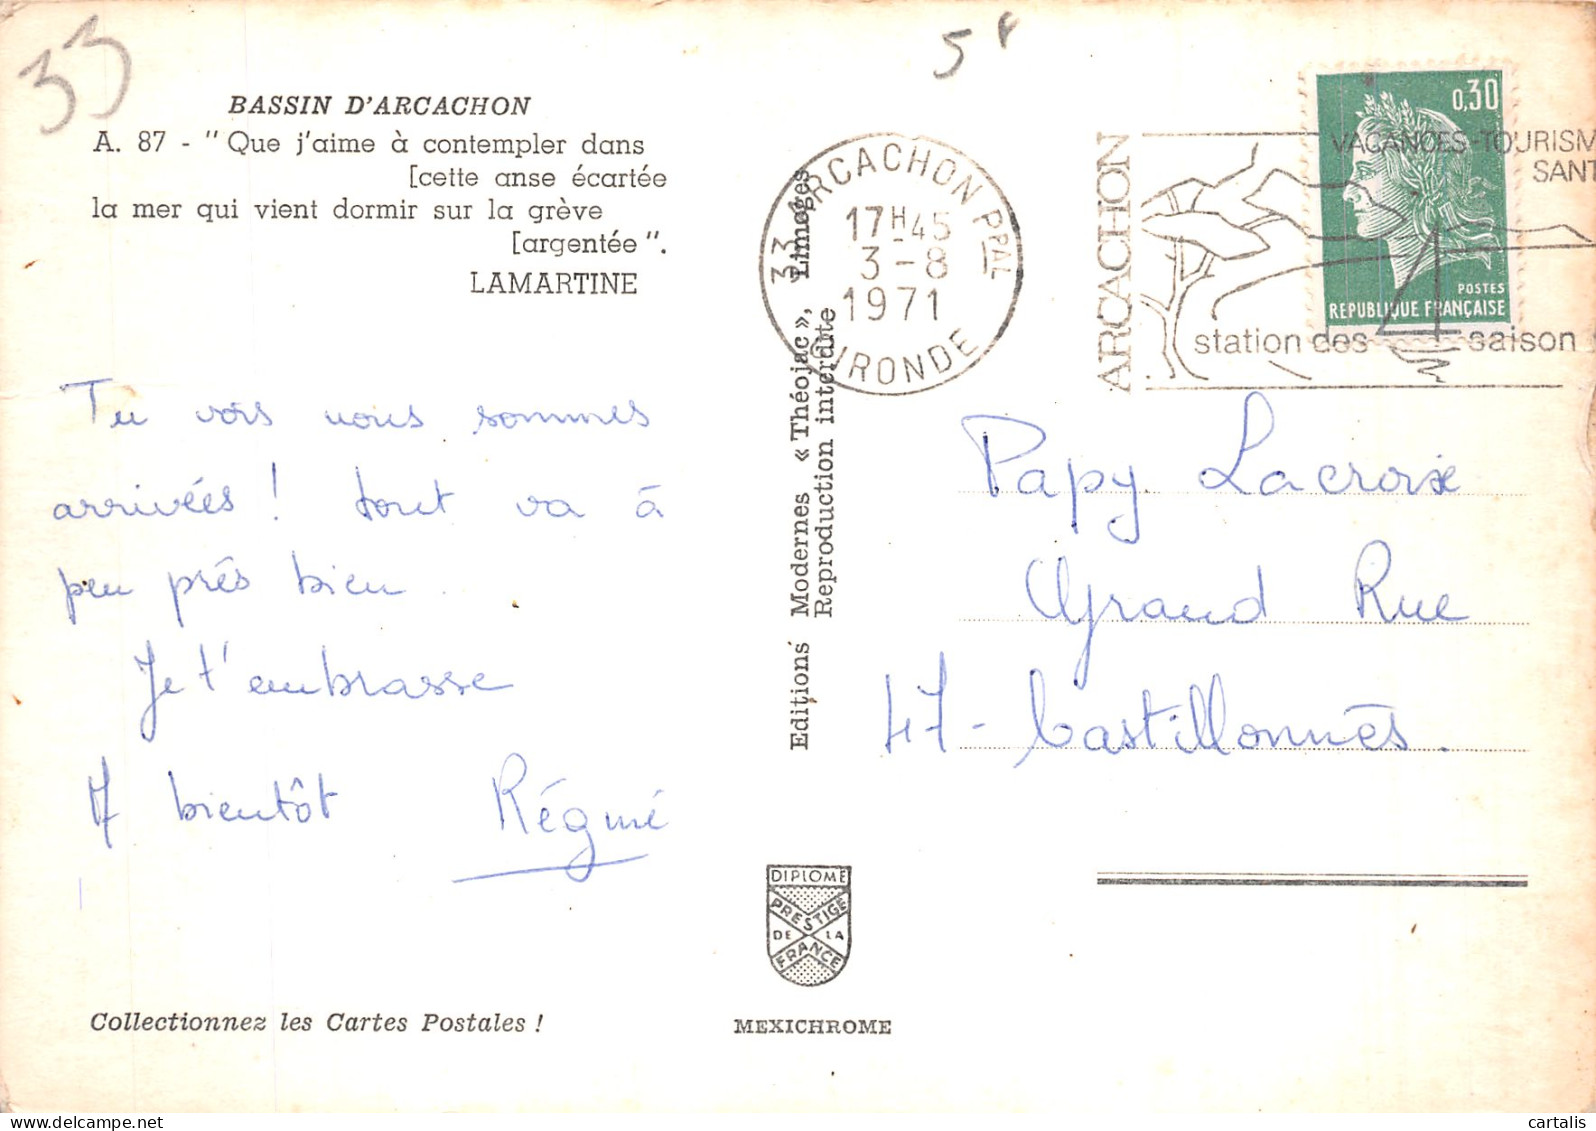 33
5F
BASSIN D'ARCACHON
A. 87 - " Que j'aime à contempler dans
[cette anse écartée
la mer qui vient dormir sur la grève
[argentée ".
LAMARTINE
Tu vois nous sommes
arrivées ! tout va à
peu près bien.
Je t'embrasse
A bientôt Régine
Collectionnez les Cartes Postales !
Editions Modernes « Théojac », Limoges
Reproduction interdite
DIPLOME
PRESTIGE
DE LA
FRANCE
MEXICHROME
33 ARCACHON PPAL
17H45
3-8
1971
GIRONDE
ARCACHON
VACANCES-TOURISM
SANT
station des 4 saison
0,30
POSTES
REPUBLIQUE FRANÇAISE
Papy Lacroix
Grand Rue
47 - Castillonnès.
cartalis
delcampe.net